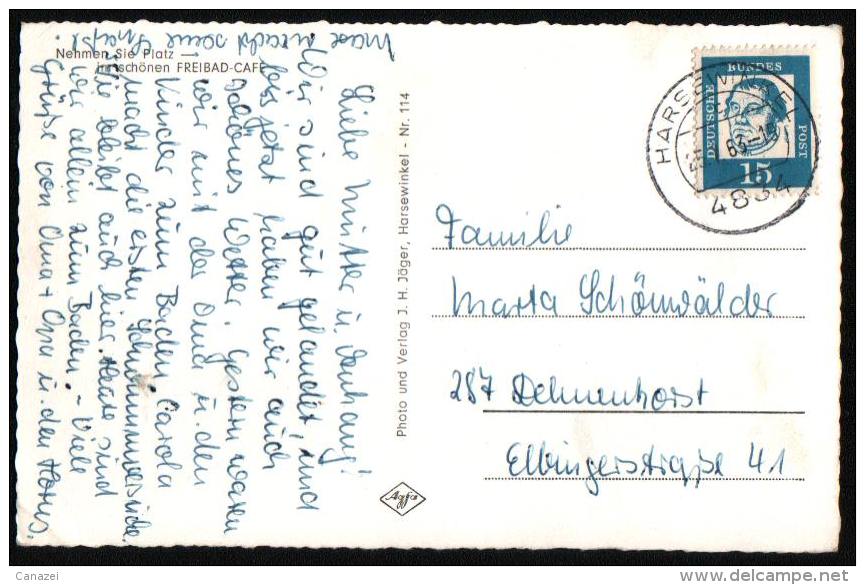 Nehmen Sie Platz —
im schönen FREIBAD-CAFÉ
Liebe Mutter u. Anhang!
Wir sind gut gelandet, und
bis jetzt haben wir auch
schönes Wetter. Gestern waren
wir mit der Oma u. den
Kinder zum Baden. Carola
macht die ersten Schwimmversuche.
Sie bleibt auch hier. Heute sind
wir allein zum Baden. - Viele
Grüße von Oma + Opa u. den
macht seine
Photo und Verlag J. H. Jäger, Harsewinkel - Nr. 114
Agfa
HARSEWINKEL
4834
DEUTSCHE
BUNDES
POST
15
Familie
Marta Schönwälder
287 Delmenhorst
Elbingerstraße 41
Canazei
delcampe.net